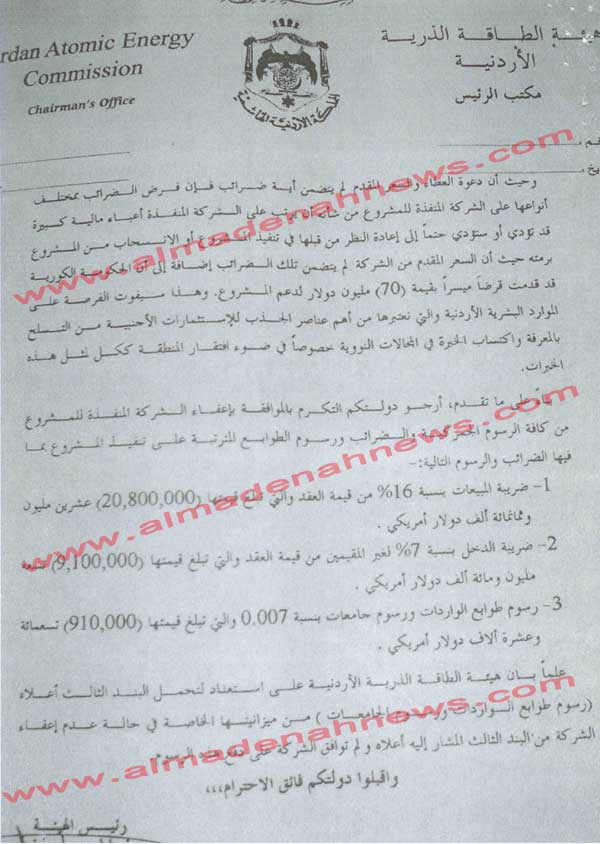 rdan Atomic Energy
Commission
Chairman's Office
المملكة الأردنية الهاشمية
هيئة الطاقة الذرية
الأردنية
مكتب الرئيس
وحيث أن دعوة العطاء والسعر المقدم لم يتضمن أية ضرائب فإن فرض الضرائب بمختلف
أنواعها على الشركة المنفذة للمشروع من شأنه أن يرتب على الشركة المنفذة أعباء مالية كبيرة
قد تؤدي أو ستؤدي حتماً إلى إعادة النظر من قبلها في تنفيذ المشروع أو الانسحاب من المشروع
برمته حيث أن السعر المقدم من الشركة لم يتضمن تلك الضرائب إضافة إلى أن الحكومة الكورية
قد قدمت قرضاً ميسراً بقيمة (70) مليون دولار لدعم المشروع. وهذا سيفوت الفرصة على
الموارد البشرية الأردنية والتي نعتبرها من أهم عناصر الجذب للإستثمارات الأجنبية من التسلح
بالمعرفة واكتساب الخبرة في المجالات النووية خصوصاً في ضوء افتقار المنطقة ككل لمثل هذه
الخبرات.
بناءً على ما تقدم، أرجو دولتكم التكرم بالموافقة بإعفاء الشركة المنفذة للمشروع
من كافة الرسوم الجمركية والضرائب ورسوم الطوابع المترتبة على تنفيذ المشروع بما
فيها الضرائب والرسوم التالية:-
1- ضريبة المبيعات بنسبة 16% من قيمة العقد والتي تبلغ قيمتها (20,800,000) عشرين مليون
وثمانمائة ألف دولار أمريكي .
2- ضريبة الدخل بنسبة 7% لغير المقيمين من قيمة العقد والتي تبلغ قيمتها (9,100,000) تسعة
مليون ومائة ألف دولار أمريكي .
3- رسوم طوابع الواردات ورسوم جامعات بنسبة 0.007 والتي تبلغ قيمتها (910,000) تسعمائة
وعشرة ألاف دولار أمريكي .
علماً بان هيئة الطاقة الذرية الأردنية على استعداد لتحمل البند الثالث أعلاه
(رسوم طوابع الواردات ورسوم الجامعات ) من ميزانيتها الخاصة في حالة عدم إعفاء
الشركة من البند الثالث المشار إليه أعلاه و لم توافق الشركة على دفع هذه الرسوم
واقبلوا دولتكم فائق الاحترام،،،
رئيس الهيئة
www.almadenahnews.com
www.almadenahnews.com
www.almadenahnews.com